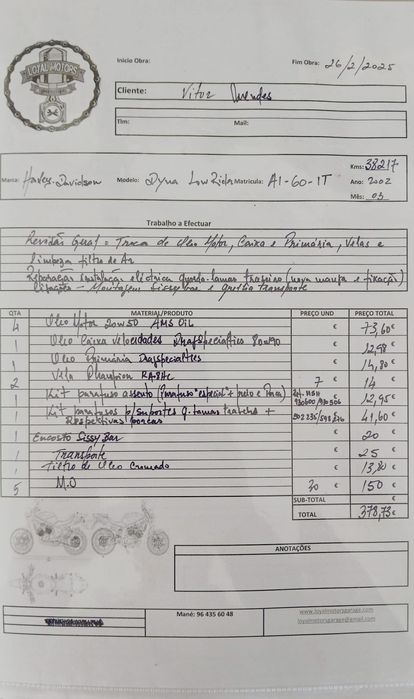 LOYAL MOTORS
Inicio Obra:
Fim Obra: 26/2/2025
Cliente: Vitor Mendes
Tlm: Mail:
Marca: Harley-Davidson Modelo: Dyna Low Rider Matricula: AI-60-IT
Kms: 38217
Ano: 2002
Mês: 03
Trabalho a Efectuar
Revisão Geral = Troca de Óleo Motor, Caixa e Primária, Velas e
limpeza filtro de Ar
Reparação instalação eléctrica guarda-lamas traseiro (nova manga e fixação)
ligações - Montagem Sissybar e grelha transporte
QTA MATERIAL/PRODUTO PREÇO UNID PREÇO TOTAL
4 Óleo Motor 20w50 AMS OIL € 73,60€
1 Óleo Caixa Velocidades Dragspecialties 80w90 € 12,98
1 Óleo Primária Dragspecialties € 14,80
2 Vela Champion RA8HC 7 € 14
1 Kit parafuso assento (Parafuso "especial" + € 12,95
1 Kit parafusos p/ Suportes G. lamas + € 41,60
Respectivas porcas
1 Encosto Sissy Bar € 20
1 Transporte € 25
1 Filtro de Óleo Cromado € 13,80
5 M.O 30 € 150
SUB-TOTAL €
TOTAL 378,73€
ANOTAÇÕES
Mané: 96 435 60 48
www.loyalmotorsgarage.com
loyalmotorsgarage@gmail.com